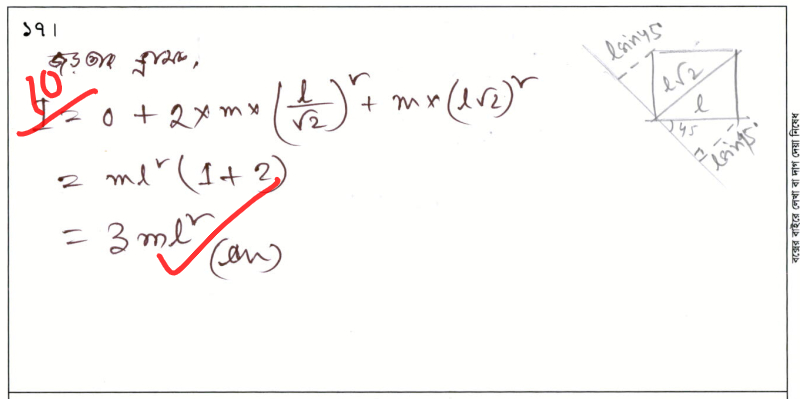 ১৭।
জড়তার ভ্রামক,
10
I = 0 + 2 × m × (l/√2)² + m × (l√2)²
= ml² (1 + 2)
= 3ml² (Ans)
lsin45°
l√2
l
45
lsin45°
বক্সের বাইরে লেখা বা দাগ দেয়া নিষেধ